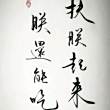 扶朕起来
朕還能吃